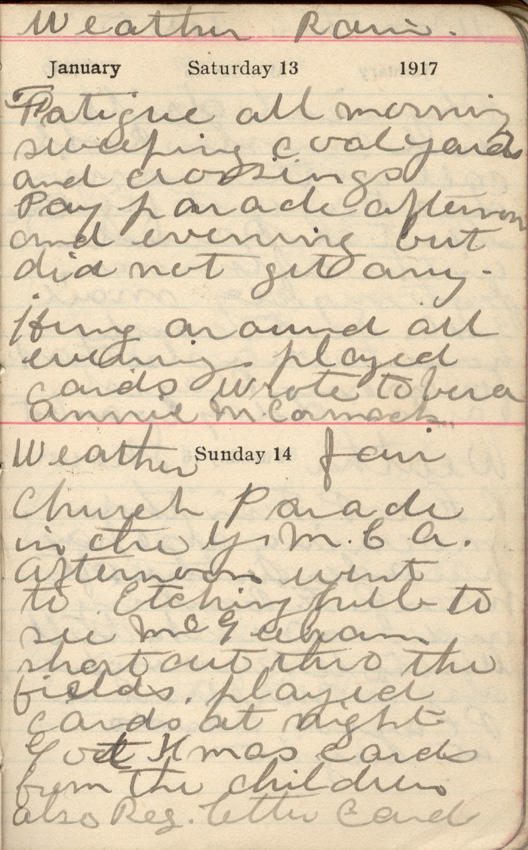 Weather Rain.
January Saturday 13 1917
Fatigue all morning
sweeping coal yards
and crossings
Pay parade afternoon
and evening but
did not get any.
Hung around all
evening, played
cards wrote to Vera
Annie McCormack.
Weather Sunday 14 fair
Church Parade
in the Y.M.C.A.
afternoon went
to Etchinghill to
see
short cut thro the
fields. played
cards at night
Got Xmas cards
from the children
also Reg. letter Card